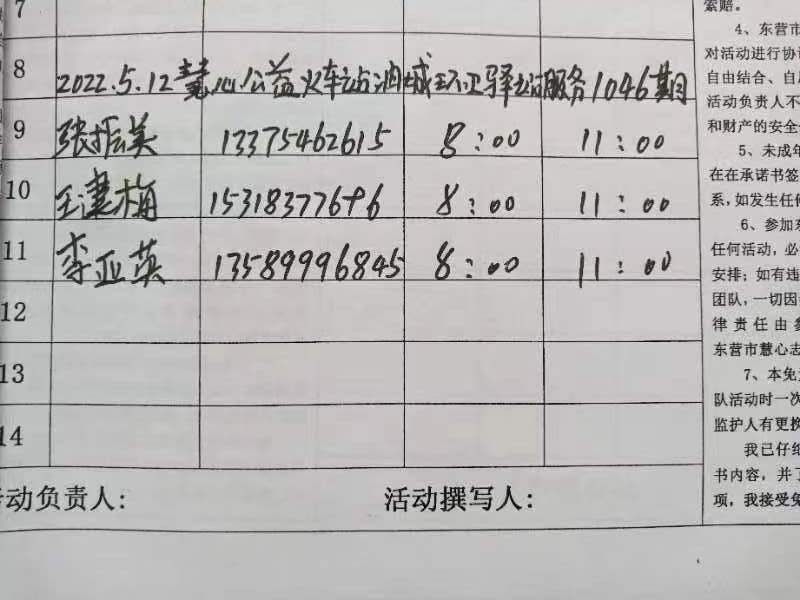 7
8 2022.5.12慧心公益火车站油城环卫驿站服务1046期
9 张振美 13375462615 8:00 11:00
10 王建梅 15318377696 8:00 11:00
11 李亚英 13589996845 8:00 11:00
12
13
14
活动负责人: 活动撰写人:
索赔。
4、东营市
对活动进行协议
自由结合、自
活动负责人不
和财产的安全
5、未成年
在在承诺书签
系,如发生任何
6、参加
任何活动,必
安排;如有违
团队,一切因
律责任由参
东营市慧心志
7、本免
队活动时一次
监护人有更换
我已仔细
书内容,并
项,我接受免